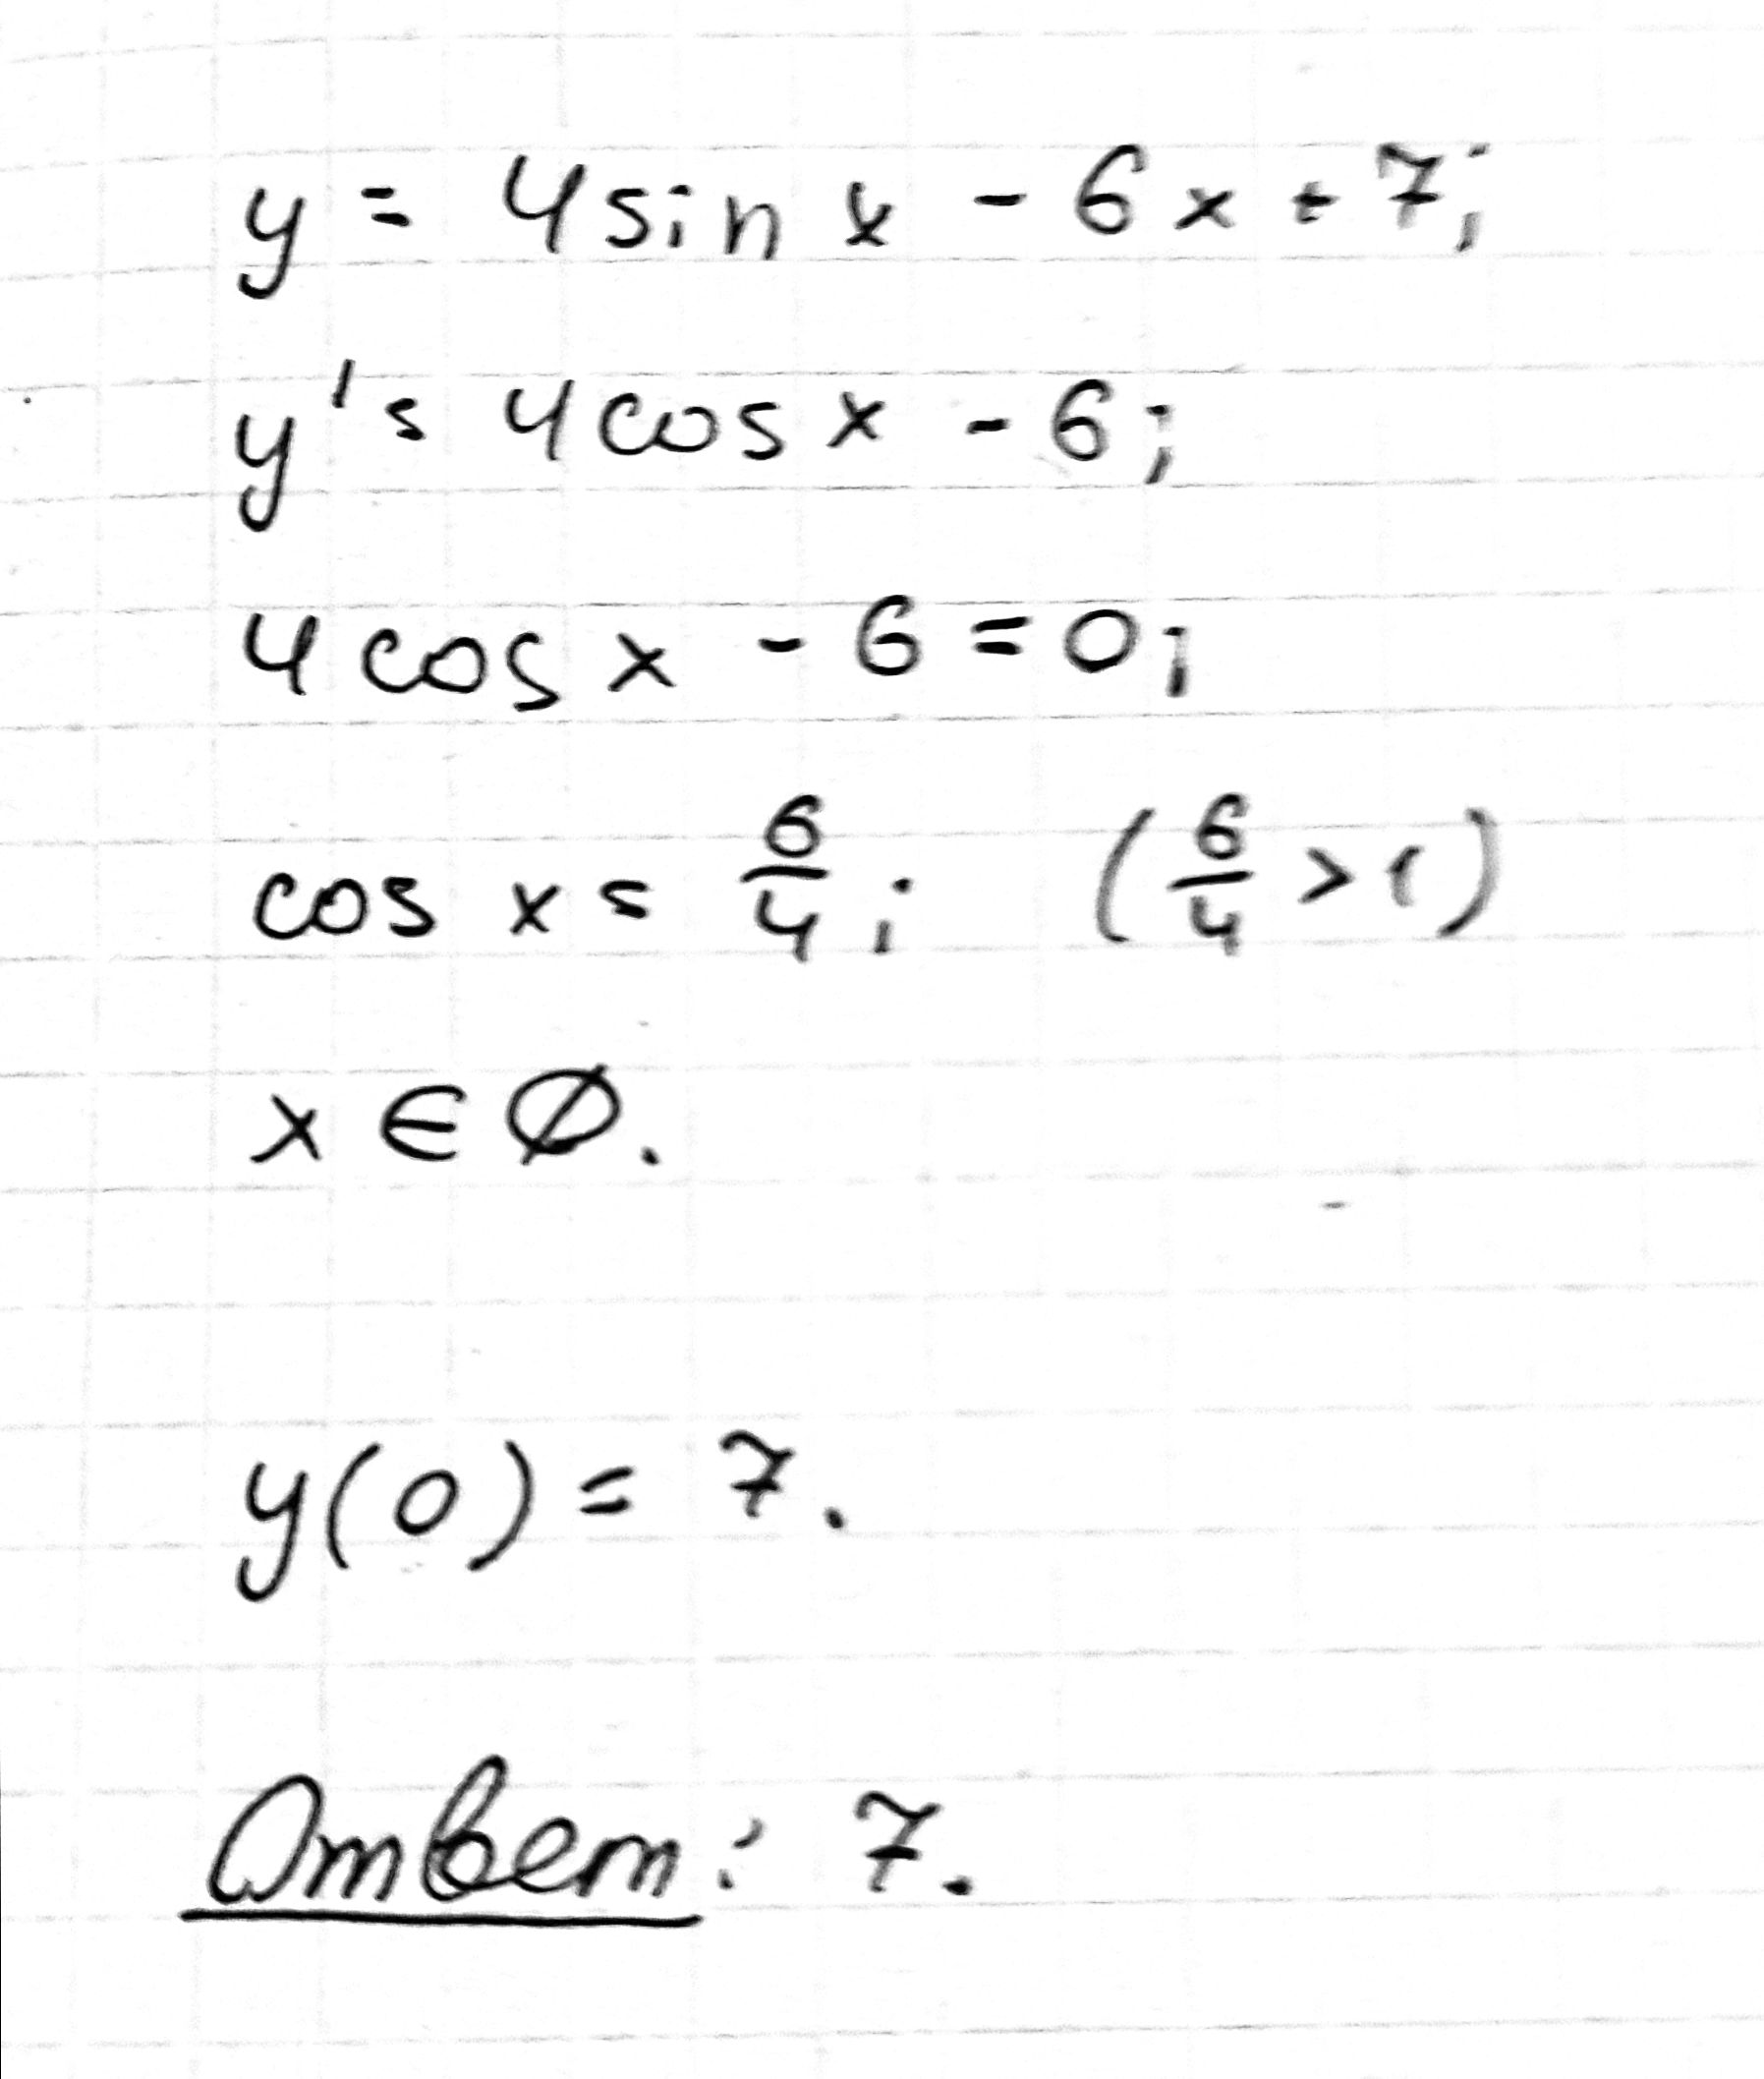 y = 4 sin x - 6x + 7;
y' = 4 cos x - 6;
4 cos x - 6 = 0;
cos x = 6/4; (6/4 > 1)
x ∈ Ø.
y(0) = 7.
Ответ: 7.